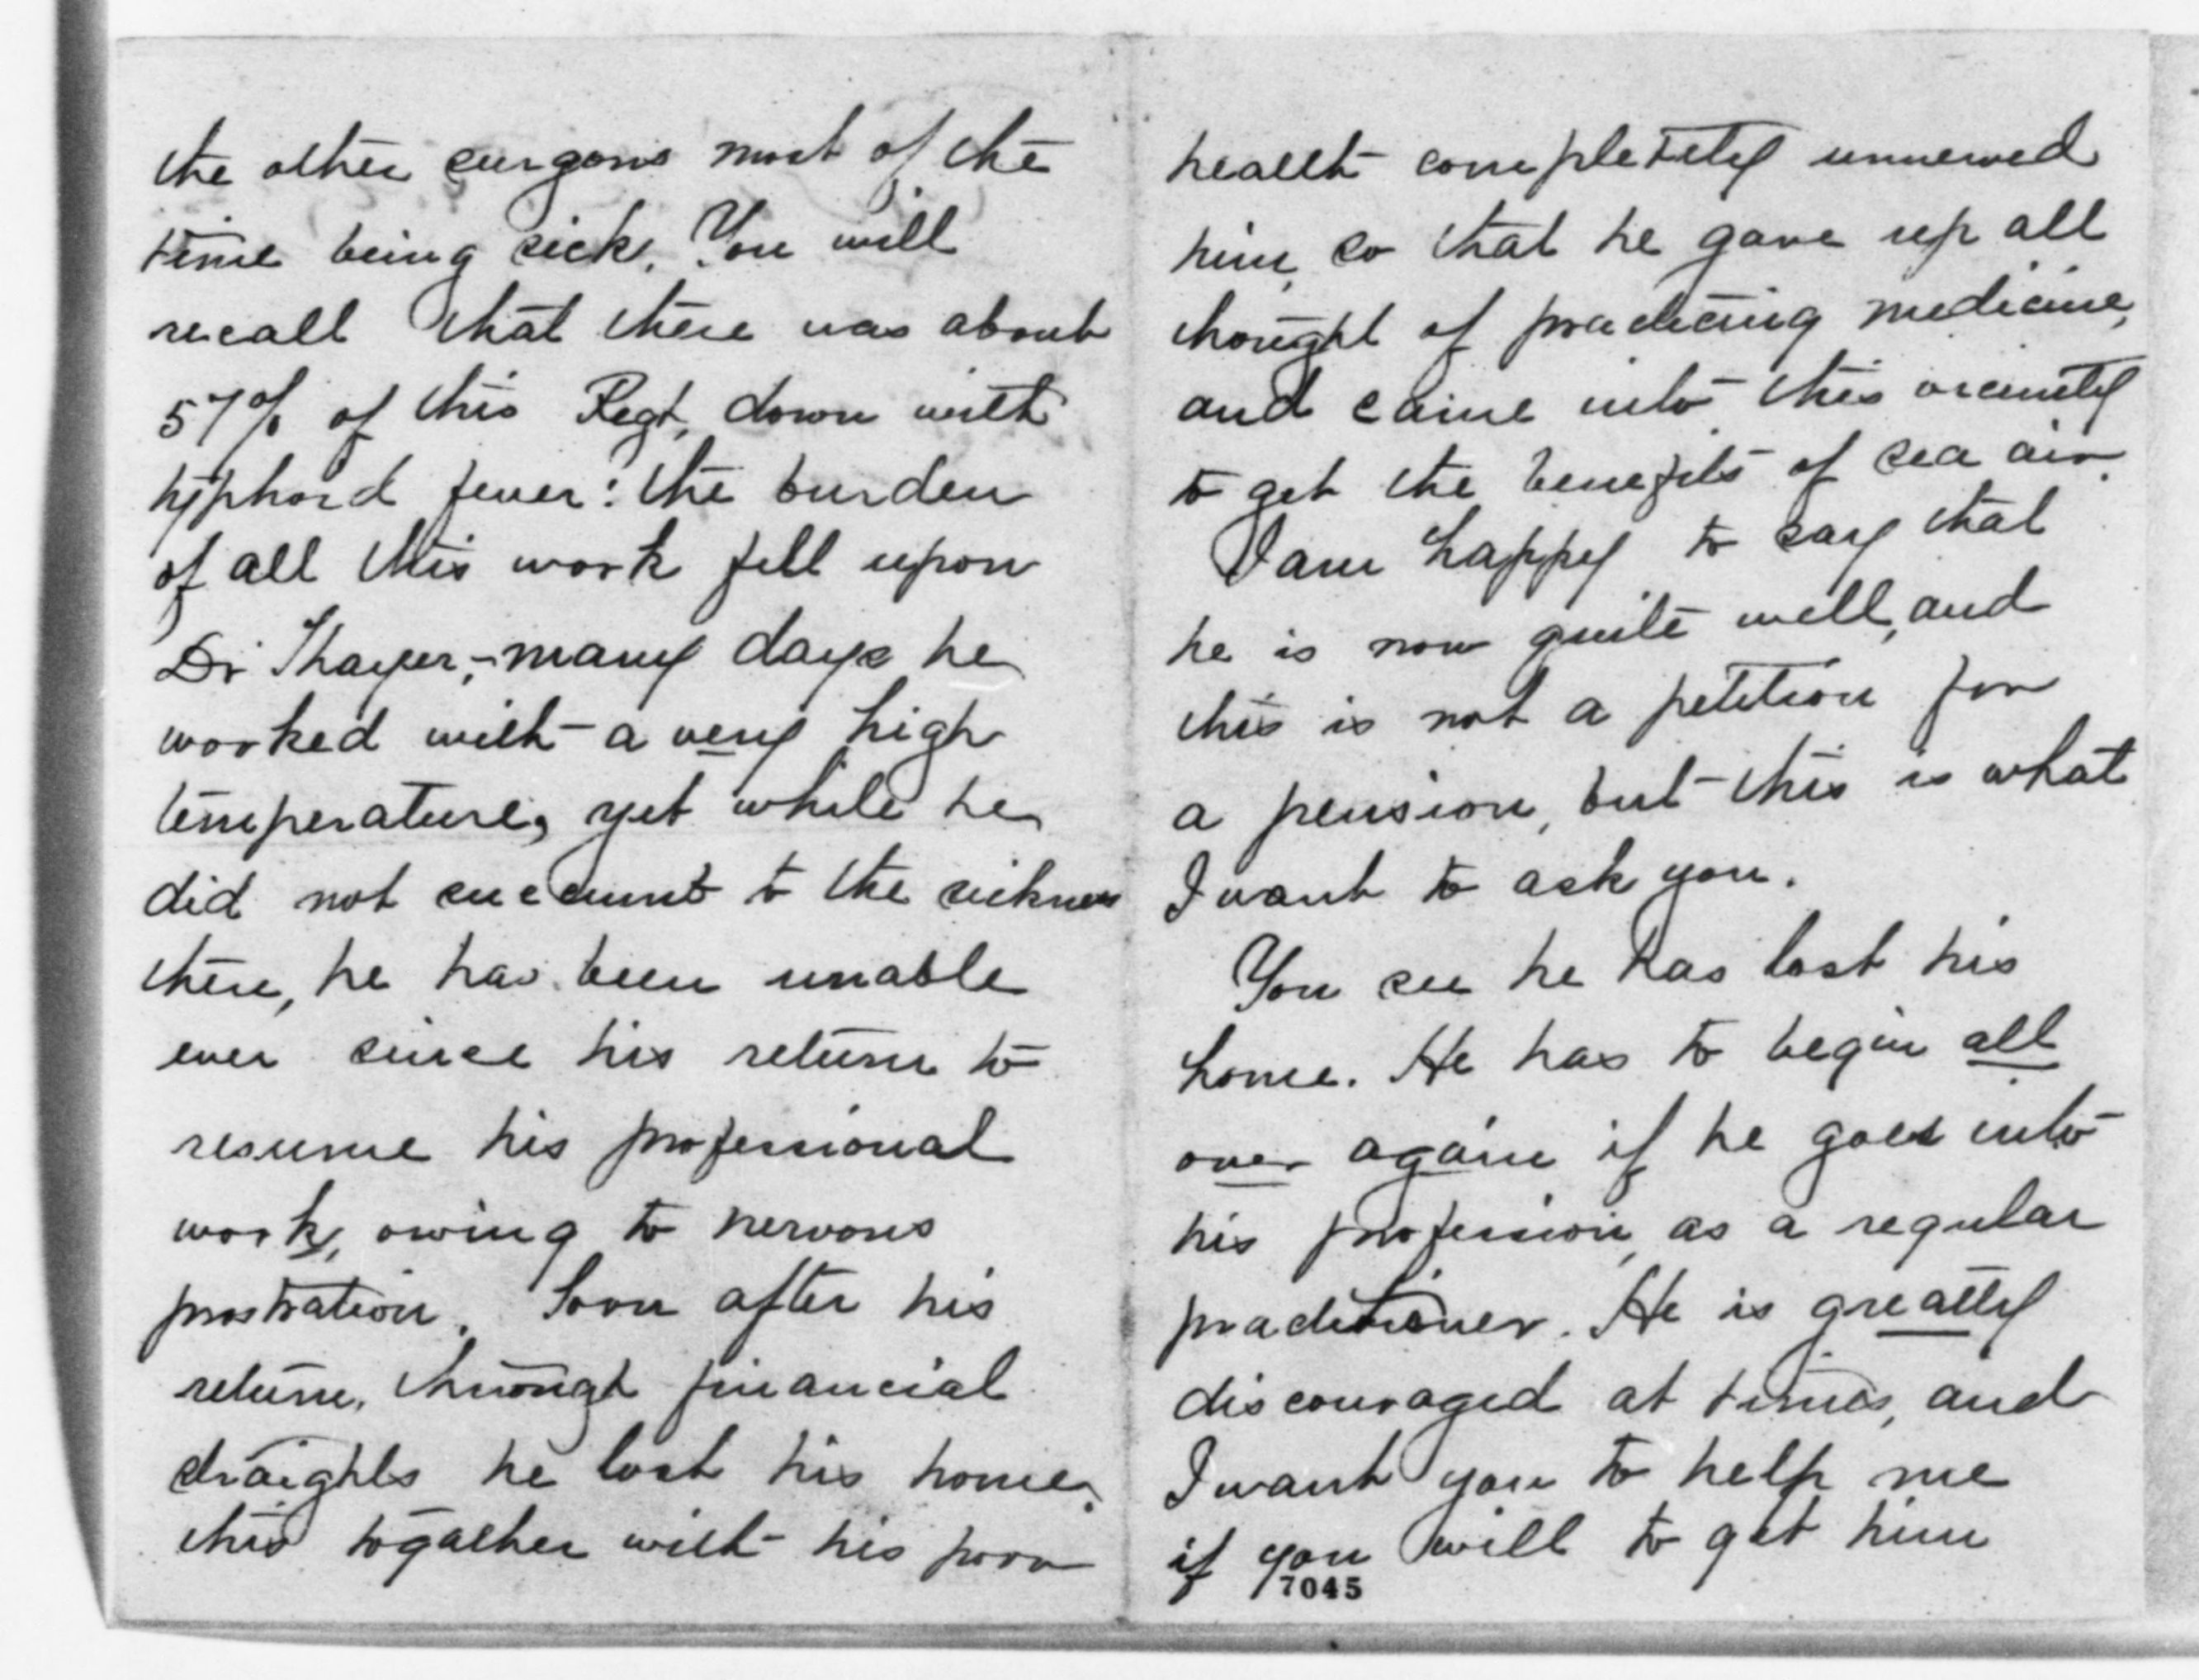 the other surgons most of the
time being sick. You will
recall that there was about
57% of this Regt. down with
typhoid fever: the burden
of all this work fell upon
Dr Thayer,-many days he
worked with a very high
temperature, yet while he
did not succumb to the sickness
there, he has been unable
ever since his return to
resume his professional
work, owing to nervous
prostration. Soon after his
return, through financial
straights he lost his home,
this together with his poor
health completely unnerved
him, so that he gave up all
thought of practicing medicine,
and came into this vicinity
to get the benefits of sea air.
I am happy to say that
he is now quite well, and
this is not a petition for
a pension, but this is what
I want to ask you.
You see he has lost his
home. He has to begin all
over again if he goes into
his profession, as a regular
practitioner. He is greatly
discouraged at times, and
I want you to help me
if you will to get him
7045